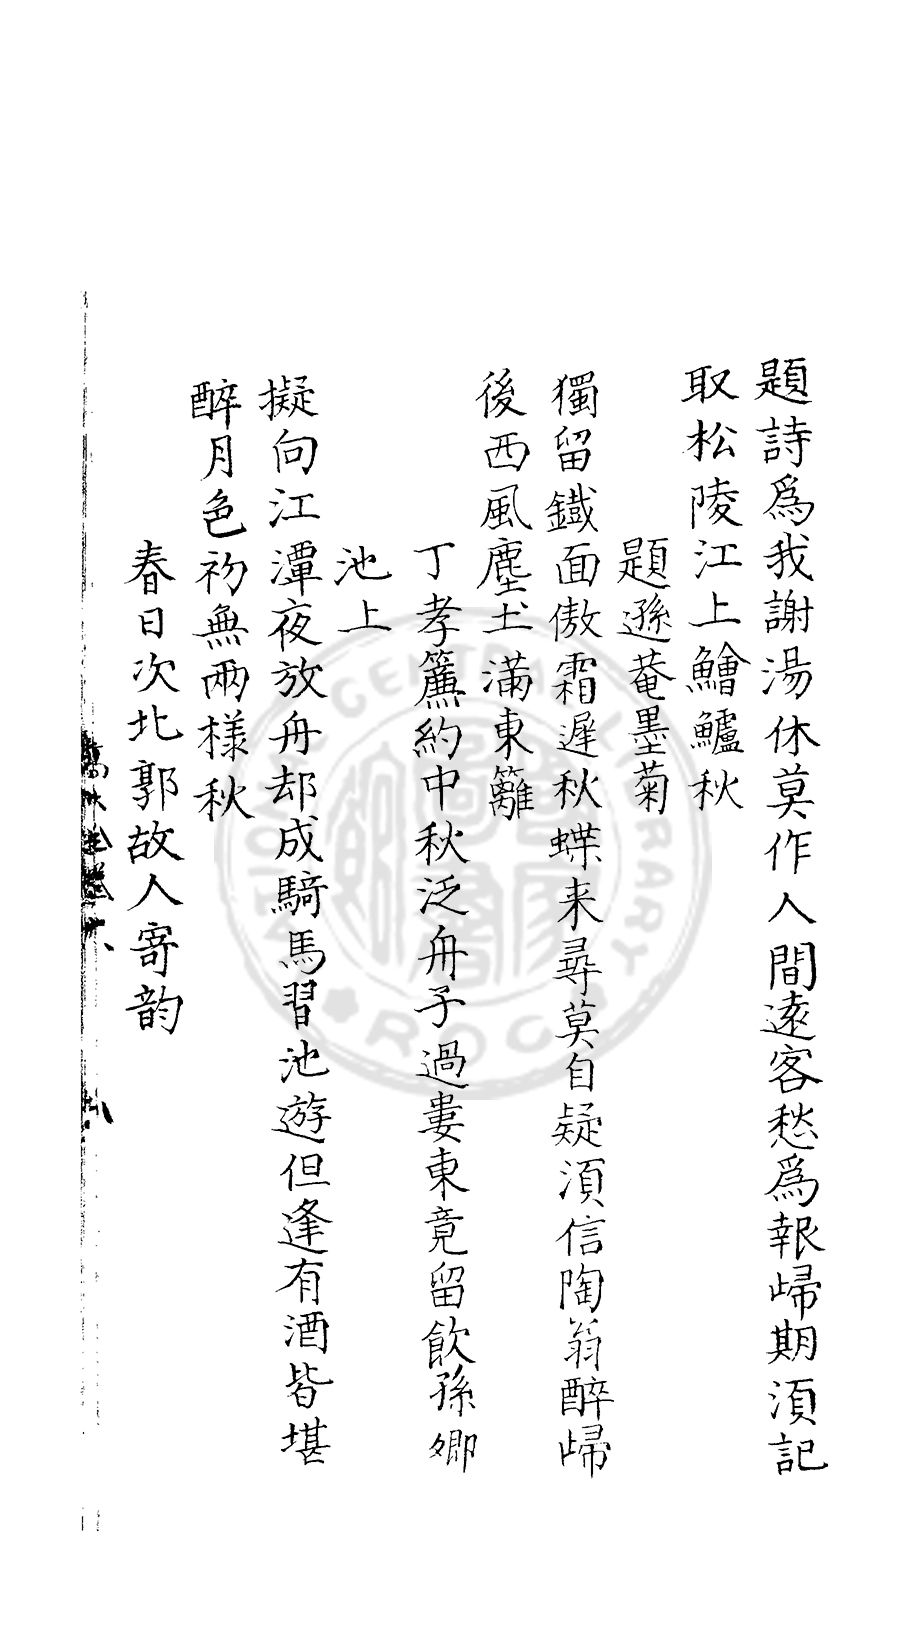 題詩爲我謝湯休莫作人間逺客愁爲報歸期湏記
取松陵江上鱠鱸秋
題遜菴墨菊
獨留鐡面傲霜遲秋蝶来尋莫自疑湏信陶翁醉歸
後西風塵土滿東籬
丁孝簾約中秋泛舟予過婁東竟留飲孫卿
池上
擬向江潭夜放舟却成騎馬習池遊但逢有酒皆堪
醉月色初無兩様秋
春日次北郭故人寄韵
NATIONAL CENTRAL LIBRARY
R.O.C.